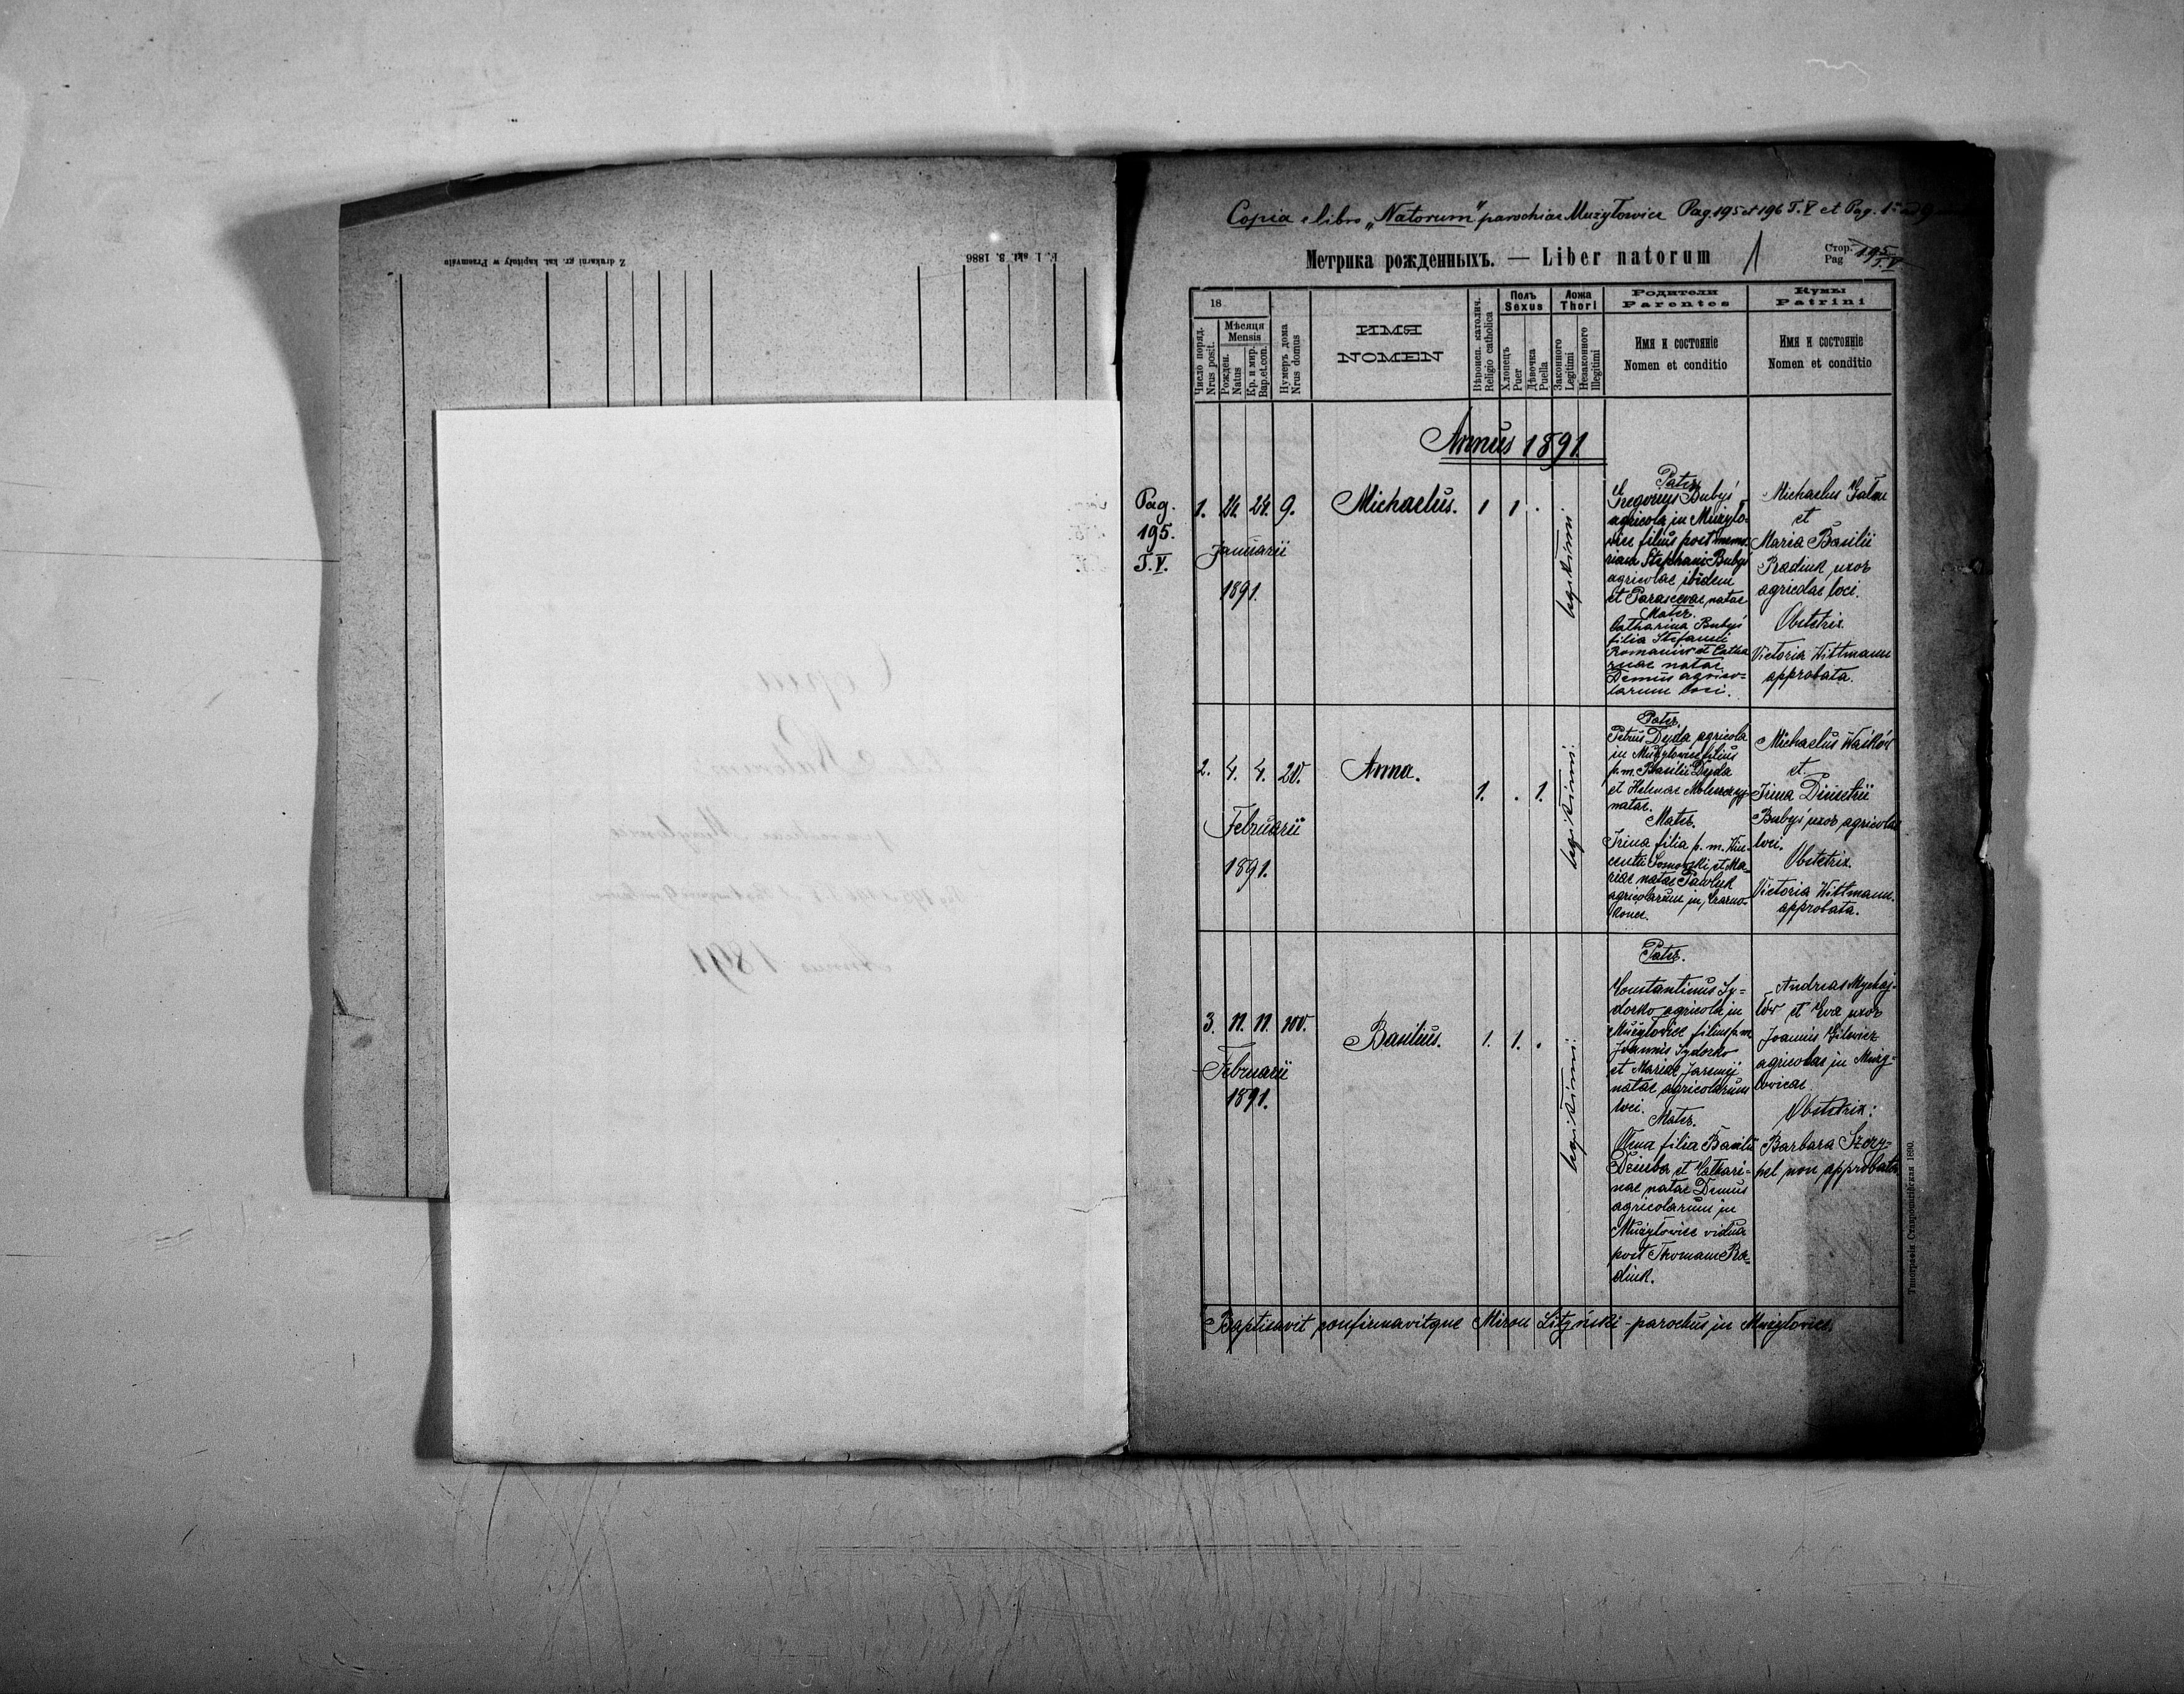 Z drukarni gr. kat. kapituły w Przemyślu
F. I. akt. 3. 1886
Copia e libro „Natorum" parochiae Mużyłowice Pag. 195 et 196 T. V et Pag. 1
Метрика рожденныхъ. — Liber natorum 1
Стор.
Pag 195
T. V
18
Число поряд.
Nrus posit.
Мѣсяця
Mensis
Рожден.
Natus
Кр. и мир.
Bap.et.con.
Нумеръ дома
Nrus domus
ИМЯ
NOMEN
Вѣроисп. католич.
Religio catholica
Полъ
Sexus
Хлопецъ
Puer
Дѣвочка
Puella
Ложа
Thori
Законного
Legitimi
Незаконного
Illegitimi
Родители
Parentes
Имя и состоянiе
Nomen et conditio
Кумы
Patrini
Имя и состоянiе
Nomen et conditio
Annus 1891
Pag.
195.
T. V.
1. 24. 24. 9. Michaelus. 1 1 .
Januarii
1891.
legitimi
Pater
Gregorius Bubyś
agricola in Mużyło-
wice filius post memo-
riam Stephani Bubyś
agricolae ibidem
et Parascevae natae
Mater.
Catharina Bubyś
filia Stefani
Romaniw et Catha
rinae natae
Demus agrico-
larum loci.
Michaelus
et
Maria Basilii
Pradiuk uxor
agricolae loci.
Obstetrix
Victoria Wittmann
approbata.
2. 4. 4. 20. Anna. 1. . 1.
Februarii
1891.
legitimi.
Pater.
Petrus Dejda agricola
in Mużyłowice filius
p. m. Basilii Dejda
et Helenae
natae.
Mater.
Irina filia p. m. Win-
centii Sosnowski et Ma-
riae natae Pawluk
agricolarum in Czarno-
końce.
Michaelus Waśków
et
Irina Dimetrii
Bubyś uxor agricolae
loci.
Obstetrix.
Victoria Wittmann.
approbata.
3. 11. 11. 100. Basilius. 1. 1. .
Februarii
1891.
legitimi.
Pater.
Constantinus Sy-
dorko agricola in
Mużyłowice filius p. m.
Joannis Sydorko
et Mariae Jaremij
natae agricolarum
loci.
Mater.
Olena filia Basilii
Dziuba et Cathari-
nae natae Demus
agricolarum in
Mużyłowice vidua
post Thomam Pra-
diuk.
Andreas Mychaj-
lów et Eva uxor
Joannis Gilewicz
agricolae in Muży-
łowicae
Obstetrix:
Barbara Szczy-
pel non approbata
Baptisavit confirmavitque Miron Lityński - parochus in Mużyłowice.
Типографія Ставропигійская 1890.